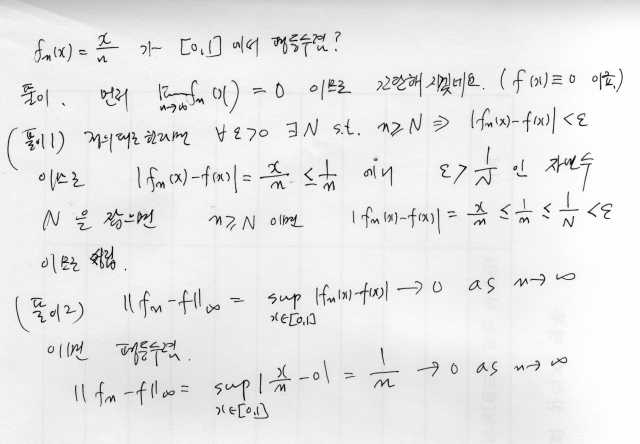 fₙ(x) = x/n 가 [0,1] 에서 평등수렴?
풀이. 먼저 lim_{n→∞} fₙ(x) = 0 이므로 간단해지겠네요. (f(x) ≡ 0 이죠)
(풀이1) 정의대로 한다면 ∀ε>0 ∃N s.t. n≥N ⇒ |fₙ(x)-f(x)| < ε
이므로 |fₙ(x)-f(x)| = x/n ≤ 1/n 에서 ε > 1/N 인 자연수
N 을 잡으면 n≥N 이면 |fₙ(x)-f(x)| = x/n ≤ 1/n ≤ 1/N < ε
이므로 성립.
(풀이2) ||fₙ-f||∞ = sup_{x∈[0,1]} |fₙ(x)-f(x)| → 0 as n→∞
이면 평등수렴.
||fₙ-f||∞ = sup_{x∈[0,1]} |x/n - 0| = 1/n → 0 as n→∞